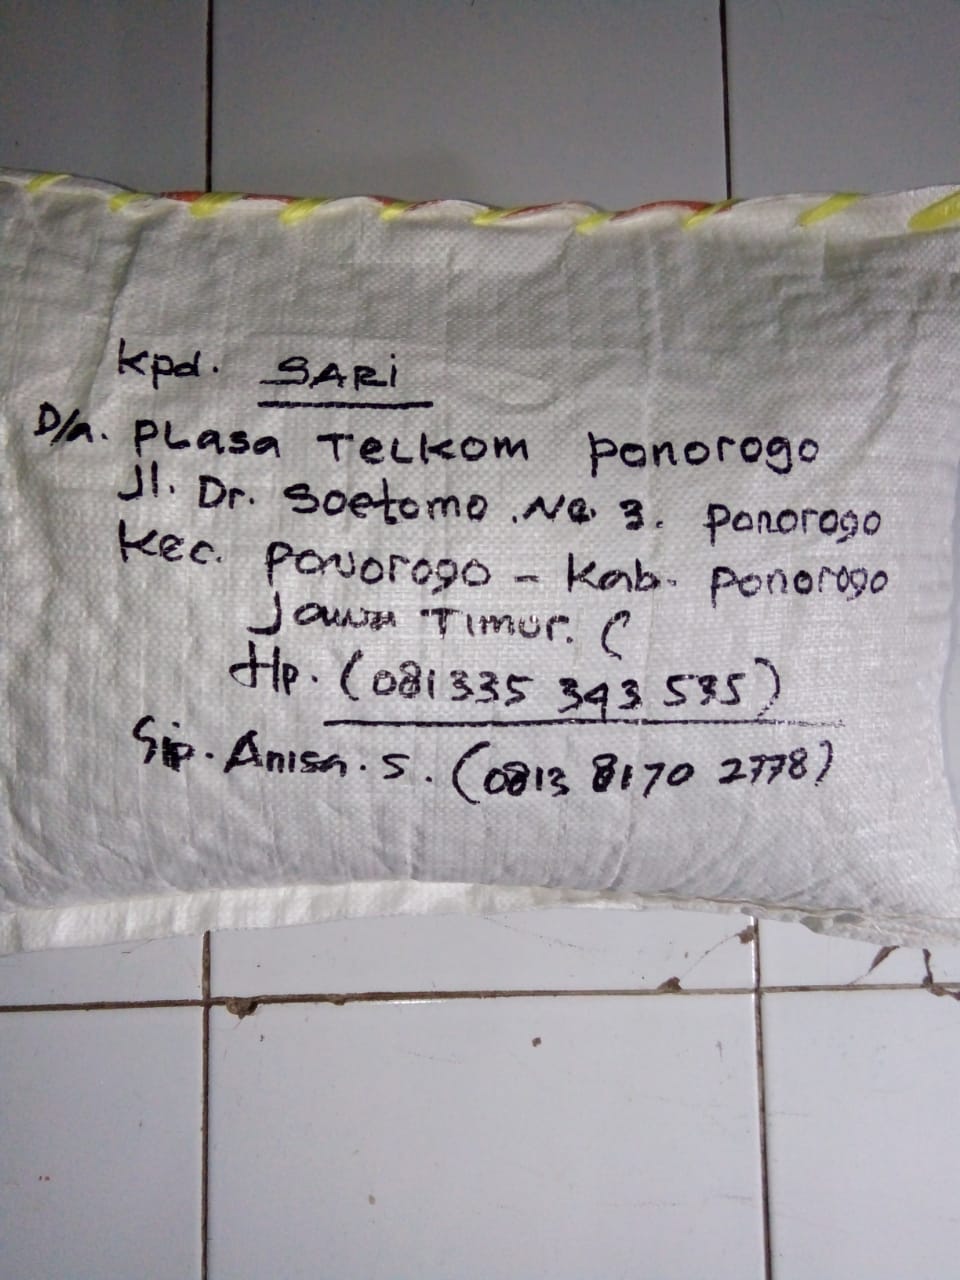 Kpd. SARi
D/a. PLasa TeLkom Ponorogo
Jl. Dr. Soetomo. No. 3. Ponorogo
Kec. Ponorogo - Kab. Ponorogo
Jawa Timur. (
Hp. (081335 343 535)
Sip. Anisa. S. (0813 8170 2778)